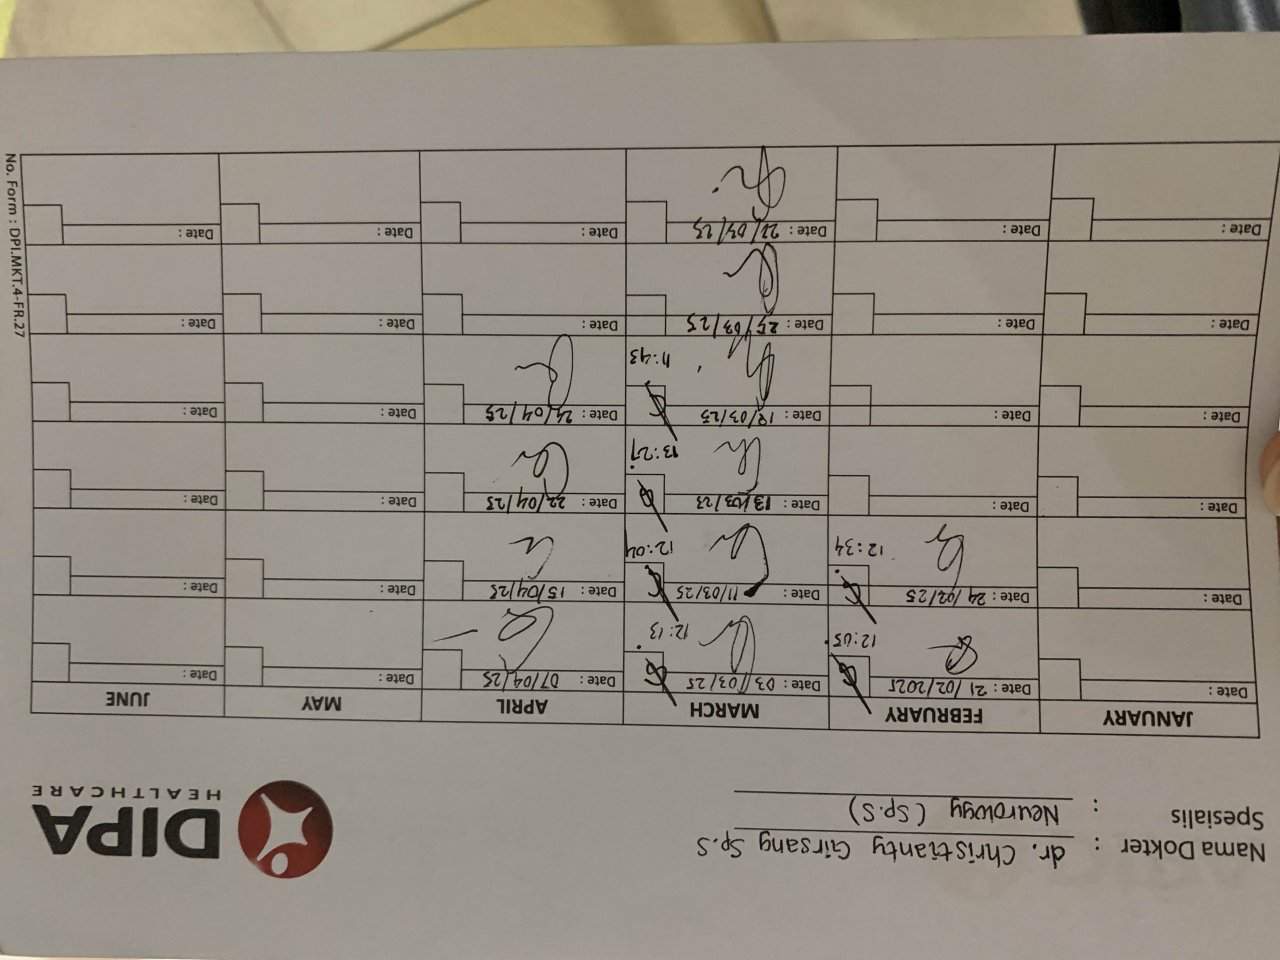 Nama Dokter : dr. Christianty Girsang Sp.S
Spesialis : Neurology (Sp.S)
DIPA
HEALTHCARE
JANUARY FEBRUARY MARCH APRIL MAY JUNE
Date : Date : 21/02/2025 Date : 03/03/25 Date : 07/04/25 Date : Date :
12:05 12:13
Date : Date : 24/02/25 Date : 11/03/25 Date : 15/04/25 Date : Date :
12:34 12:04
Date : Date : Date : 13/03/23 Date : 22/04/25 Date : Date :
13:27
Date : Date : Date : 18/03/25 Date : 24/04/25 Date : Date :
11:43
Date : Date : Date : 25/03/25 Date : Date : Date :
Date : Date : Date : Date : Date : Date :
No. Form : DPI.MKT.4-FR.27